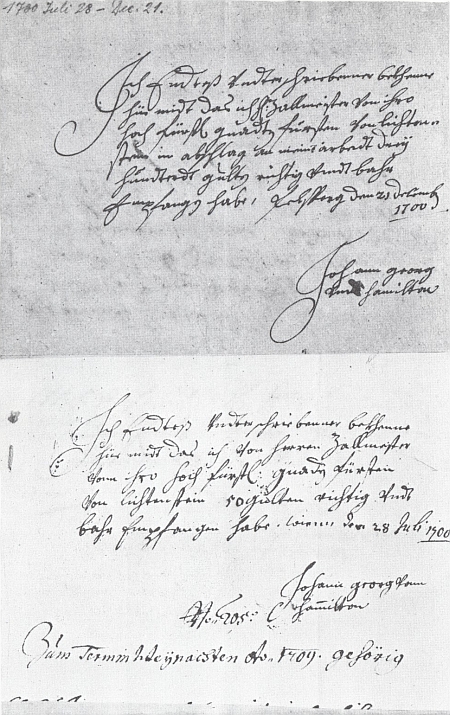 1700 Juli 28 - Dec. 21.
Ich Endteß Undterschriebenner bekhenne
hie midt das ich H: Zallmeister von ihro
hoch fürstl: gnadten fürsten von lichten-
stein in abschlag an meine arbedt drey
hunderdt gulten richtig Undt bahr
Empfangen habe, den 21 decemb
1700
Johann georg
hamilton
Ich Endteß Undterschriebenner bekhenne
hie midt das ich von herren Zallmeister
vonn ihro hoch fürstl: gnadten fürsten
von lichtenstein 50 gulten richtig Undt
bahr Empfangen habe. wienn den 28 Juli 1700
Johann georg von
hammilton
No: 205:
Zum Termin Weynachten Ao. 1709. gehörig